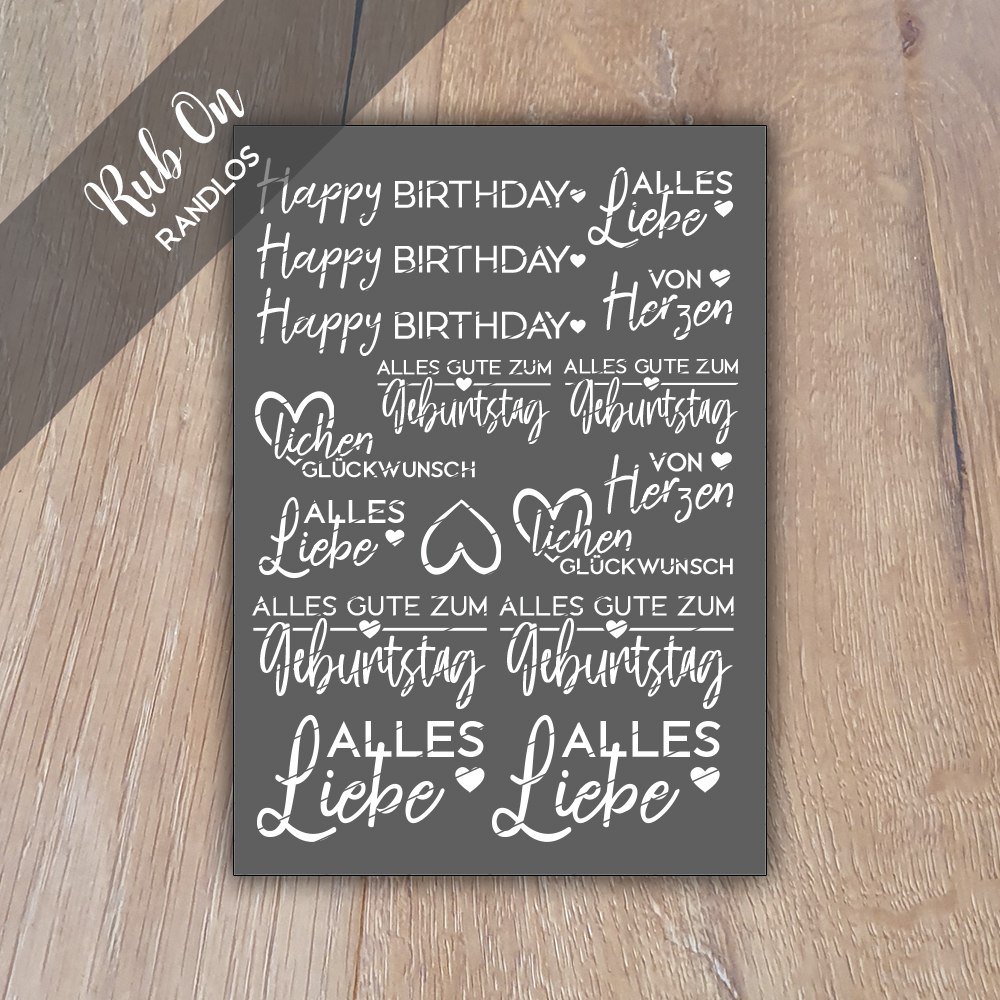 Rub On
RANDLOS
Happy BIRTHDAY
ALLES
Liebe
Happy BIRTHDAY
VON
Herzen
Happy BIRTHDAY
ALLES GUTE ZUM
Geburtstag
ALLES GUTE ZUM
Geburtstag
lichen
GLÜCKWUNSCH
VON
Herzen
ALLES
Liebe
lichen
GLÜCKWUNSCH
ALLES GUTE ZUM
Geburtstag
ALLES GUTE ZUM
Geburtstag
ALLES
Liebe
ALLES
Liebe